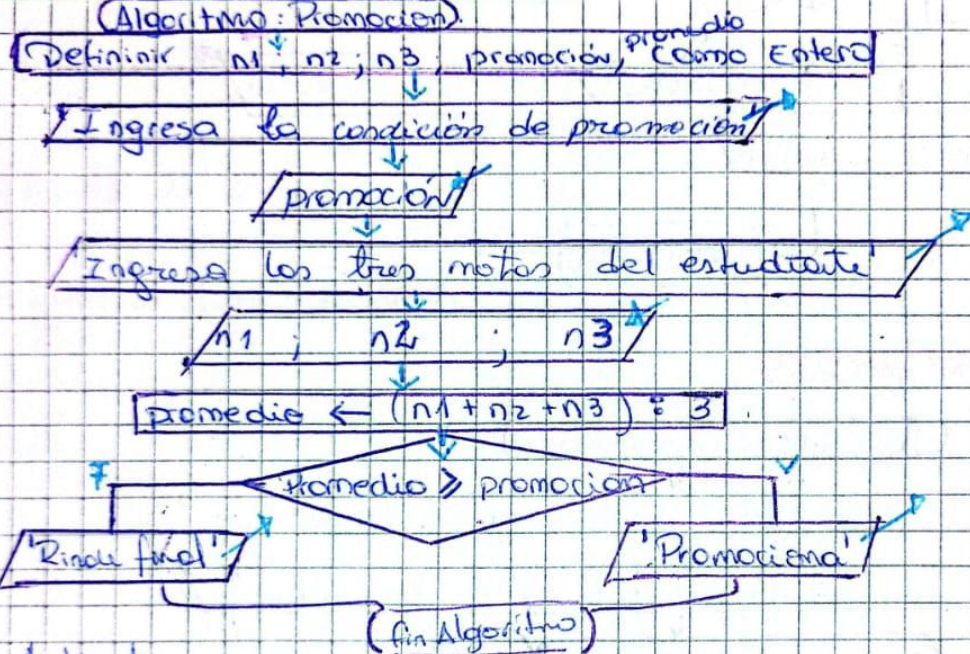 Algoritmo: Promocion
Defininir n1; n2; n3; promoción, promedio como Entero
'Ingresa la condición de promoción'
promoción
'Ingresa las tres notas del estudiante'
n1 ; n2 ; n3
promedio ← (n1 + n2 + n3) : 3
Promedio ≥ promocion
F V
'Rinde final' 'Promociona'
fin Algoritmo